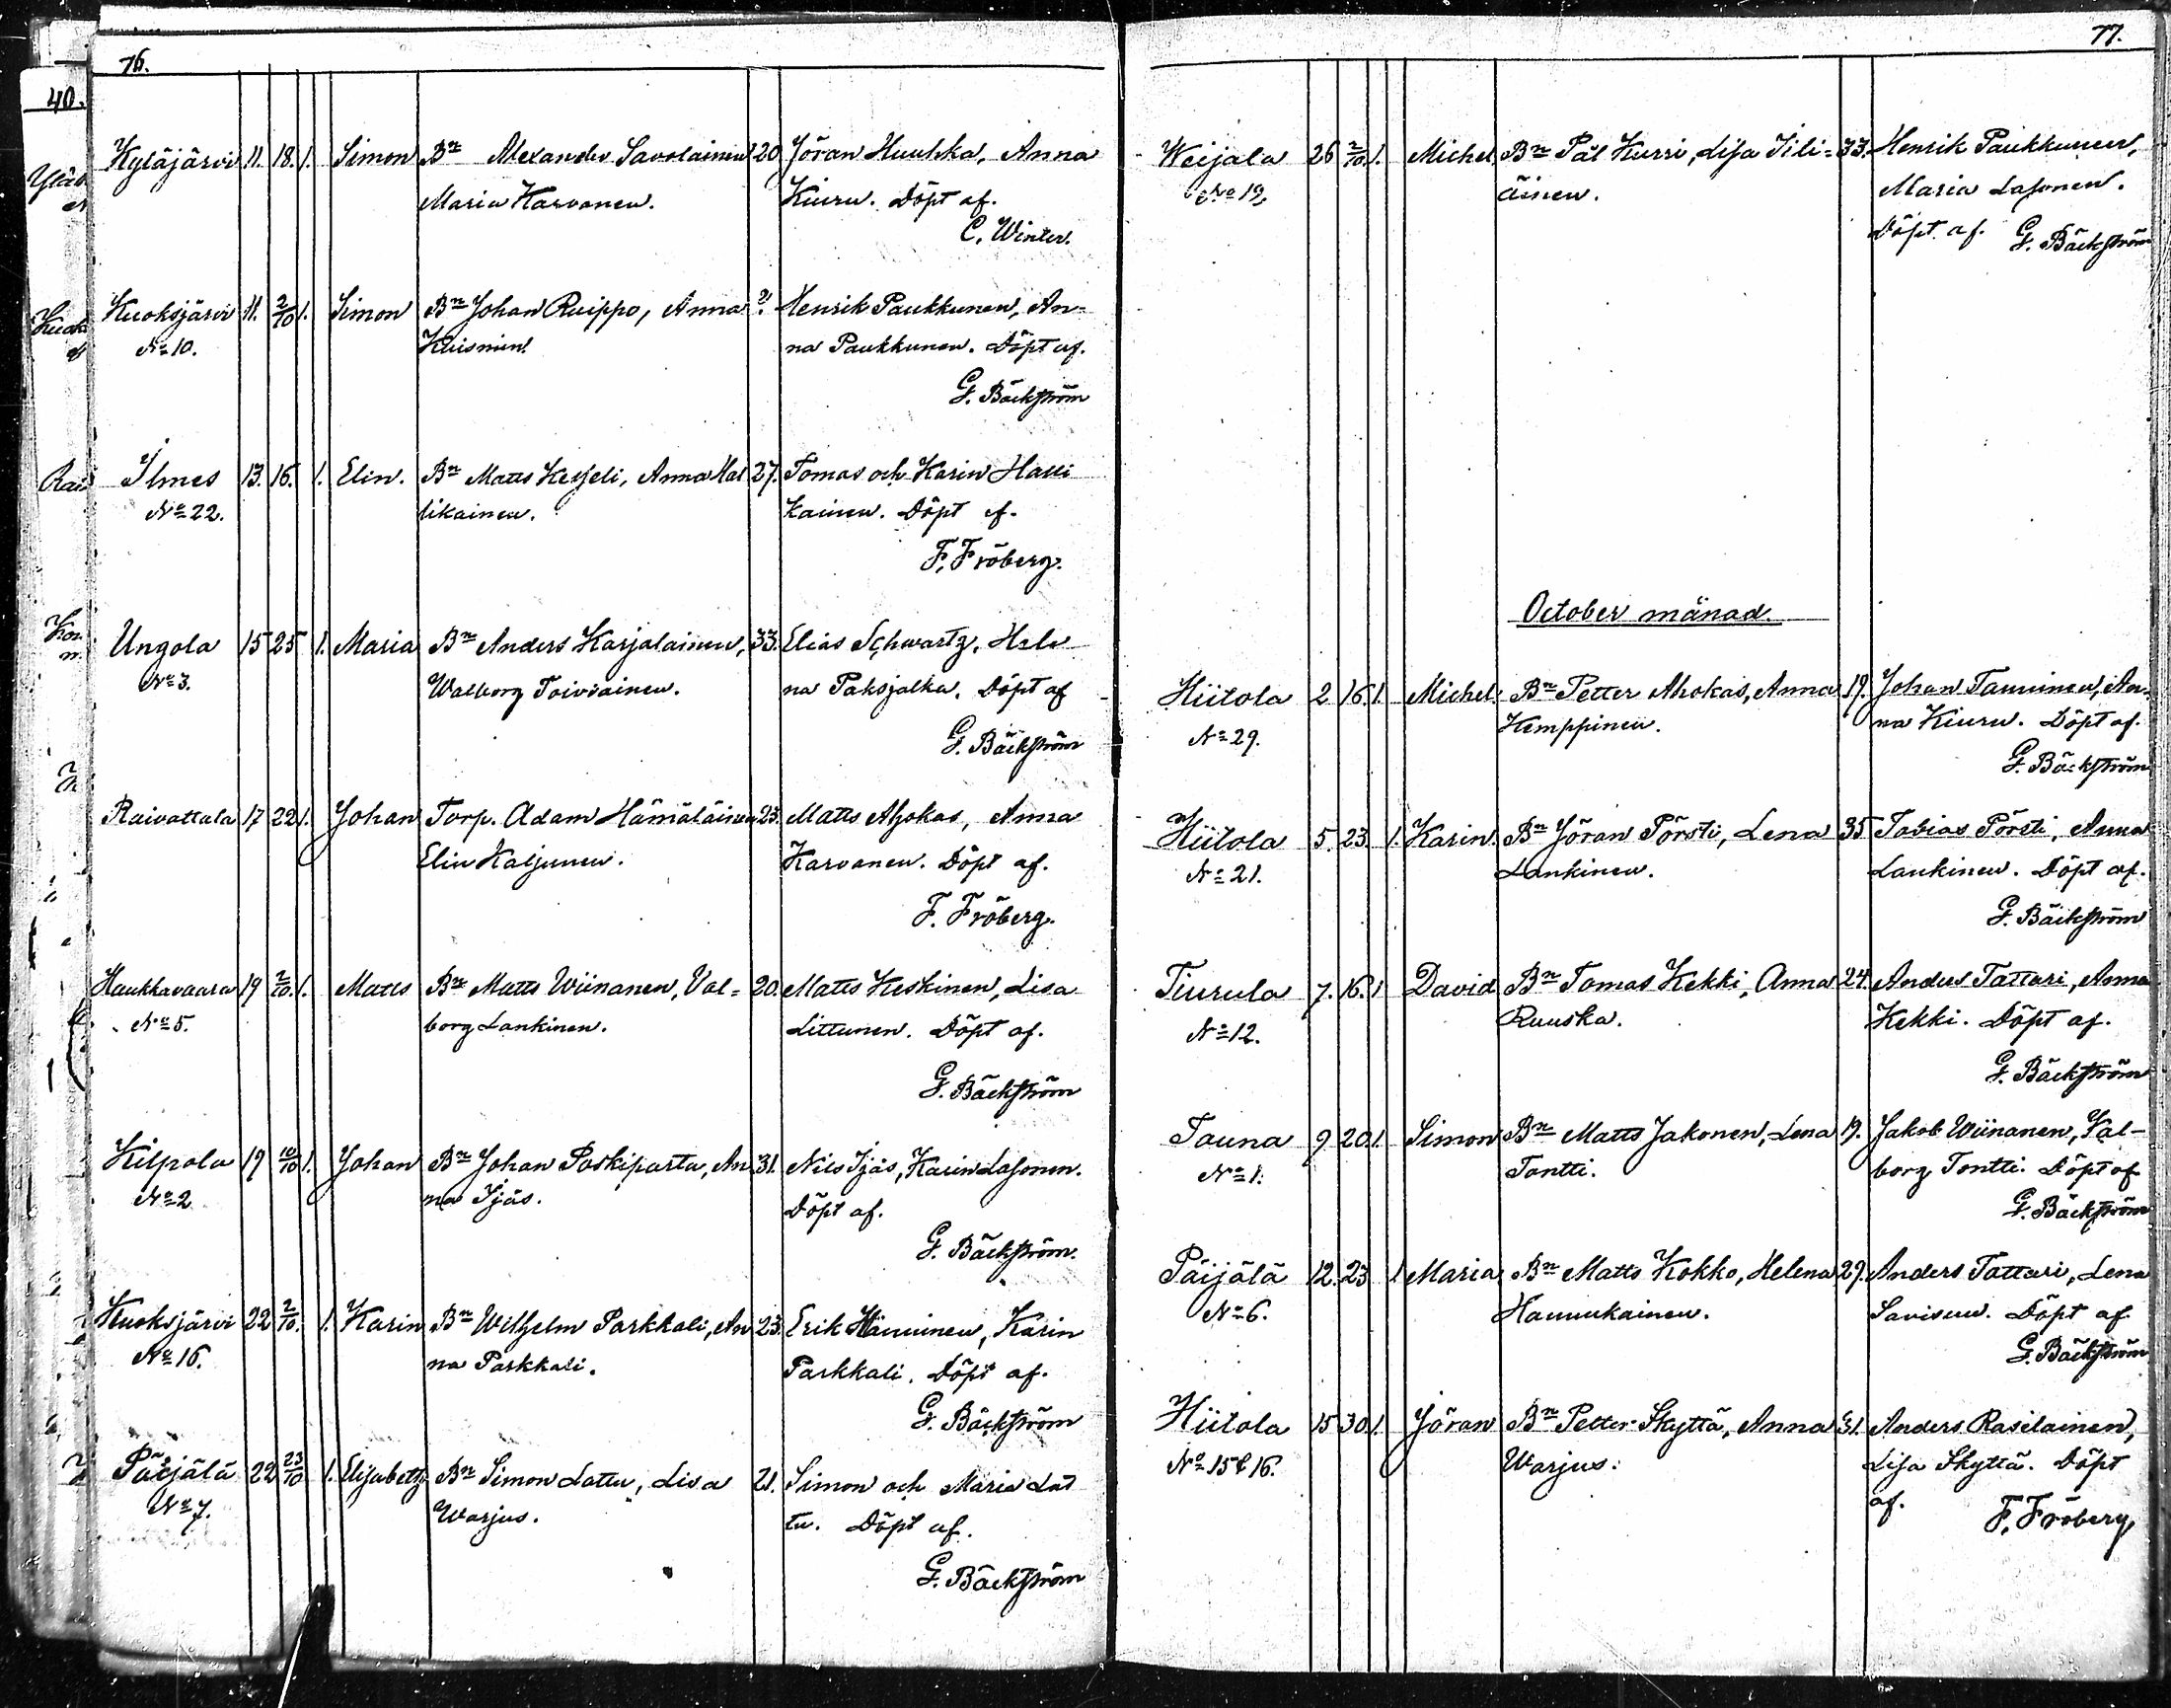 76.
Kyläjärvi 11. 18. 1. Simon Bn Alexander Savolainen 20 Jöran Huuhka, Anna
Maria Karvonen. Kiuru. Döpt af.
C. Winter.
Kuoksjärvi 11. 2/10 1. Simon Bn Johan Ruippo, Anna ? Henrik Paukkunen, An=
No 10. Kuisminen na Paukkunen. Döpt af.
G. Bäckström
Ilmes 13. 16. 1. Elin. Bn Matts Kesseli, Anna Hal 27. Tomas och Karin Halli
No 22. likainen. kainen. Döpt af.
F. Fröberg.
Ungola 15 25 1. Maria Bn Anders Karjalainen, 33. Elias Schwartz, Hele
No 3. Walborg Toiviainen. na Paksjalka. Döpt af
G. Bäckström
Raivattala 17 22 1. Johan Torp. Adam Hämäläinen 23. Matts Ahokas, Anna
Elin Kaljunen. Karvonen. Döpt af.
F. Fröberg.
Haukkavaara 19 2/10. 1. Matts Bn Matts Wiinanen, Val= 20. Matts Keskinen, Lisa
No 5. borg Lankinen. Littunen. Döpt af.
G. Bäckström
Kilpola 19 10/10 1. Johan Bn Johan Paskiparta, An 31. Nils Ijäs, Karin Lasonen.
No 2 na Ijäs. Döpt af.
G. Bäckström.
Kuoksjärvi 22 2/10. 1. Karin Bn Wilhelm Parkkali, An 23. Erik Hänninen, Karin
No 16. na Parkkali. Parkkali. Döpt af.
G. Bäckström
Päijälä 22 23/10 1. Elisabeth Bn Simon Lattu, Lisa 21. Simon och Maria Lat
No 7. Warjus. tu. Döpt af.
G. Bäckström
77.
Weijala 26 2/10 1. Michel Bn Pål Kurri, Lisa Iili= 33. Henrik Paukkunen,
No 19. äinen. Maria Lasonen.
Döpt af. G. Bäckström
October månad.
Hiitola 2 16. 1. Michel Bn Petter Ahokas, Anna 19. Johan Tanninen, An-
No 29. Kemppinen. na Kiuru. Döpt af.
G. Bäckström
Hiitola 5. 23. 1. Karin. Bn Jöran Pörsti, Lena 35 Tobias Pörsti, Anna
No 21. Lankinen. Lankinen. Döpt af.
G. Bäckström
Tiurula 7. 16. 1 David Bn Tomas Kekki, Anna 24. Anders Tattari, Anna
No 12. Ruuska. Kekki. Döpt af.
G. Bäckström
Tauna 9 20 1. Simon Bn Matts Jakonen, Lena 19. Jakob Wiinanen, Val-
No 1. Tontti. borg Tontti. Döpt af
G. Bäckström
Päijälä 12. 23 1 Maria Bn Matts Kokko, Helena 29. Anders Tattari, Lena
No 6. Hannukainen. Savisuu. Döpt af
G. Bäckström
Hiitola 15 30 1. Jöran Bn Petter Skyttä, Anna 31. Anders Rasilainen,
No 15 & 16. Warjus. Lisa Skyttä. Döpt
af. F. Fröberg